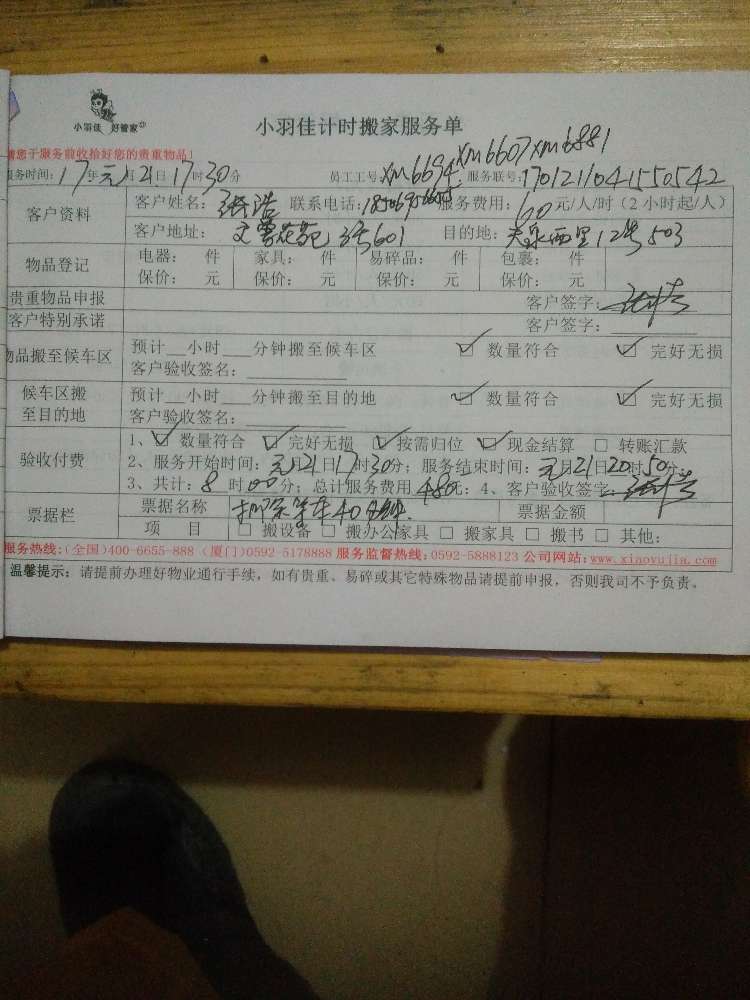 小羽佳 好管家
小羽佳计时搬家服务单
请您于服务前收拾好您的贵重物品!
服务时间: 17年元月21日17时30分 员工工号: xm6694 xm6607 xm6881 服务联号: 1701211041550542
客户资料 客户姓名: 张浩 联系电话: 服务费用: 60元/人/时(2小时起/人)
客户地址: 文曾花苑 3号601 目的地: 西里12号503
物品登记 电器: 件 家具: 件 易碎品: 件 包裹: 件
保价: 元 保价: 元 保价: 元 保价: 元
贵重物品申报 客户签字:
客户特别承诺 客户签字:
物品搬至候车区 预计__小时___分钟搬至候车区 ☑ 数量符合 ☑ 完好无损
客户验收签名:
候车区搬至目的地 预计__小时___分钟搬至目的地 ☑ 数量符合 ☑ 完好无损
客户验收签名:
验收付费 1、☑ 数量符合 ☑ 完好无损 ☑ 按需归位 ☑ 现金结算 □ 转账汇款
2、服务开始时间: 元月21日17时30分; 服务结束时间: 元月21日20时50分
3、共计: 8时00分; 总计服务费用 480元; 4、客户验收签字:
票据栏 票据名称 等车40分钟. 票据金额
项 目 □ 搬设备 □ 搬办公家具 □ 搬家具 □ 搬书 □ 其他:
服务热线:(全国)400-6655-888 (厦门)0592-5178888 服务监督热线:0592-5888123 公司网站:www.xiaoyujia.com
温馨提示: 请提前办理好物业通行手续, 如有贵重、易碎或其它特殊物品请提前申报, 否则我司不予负责。